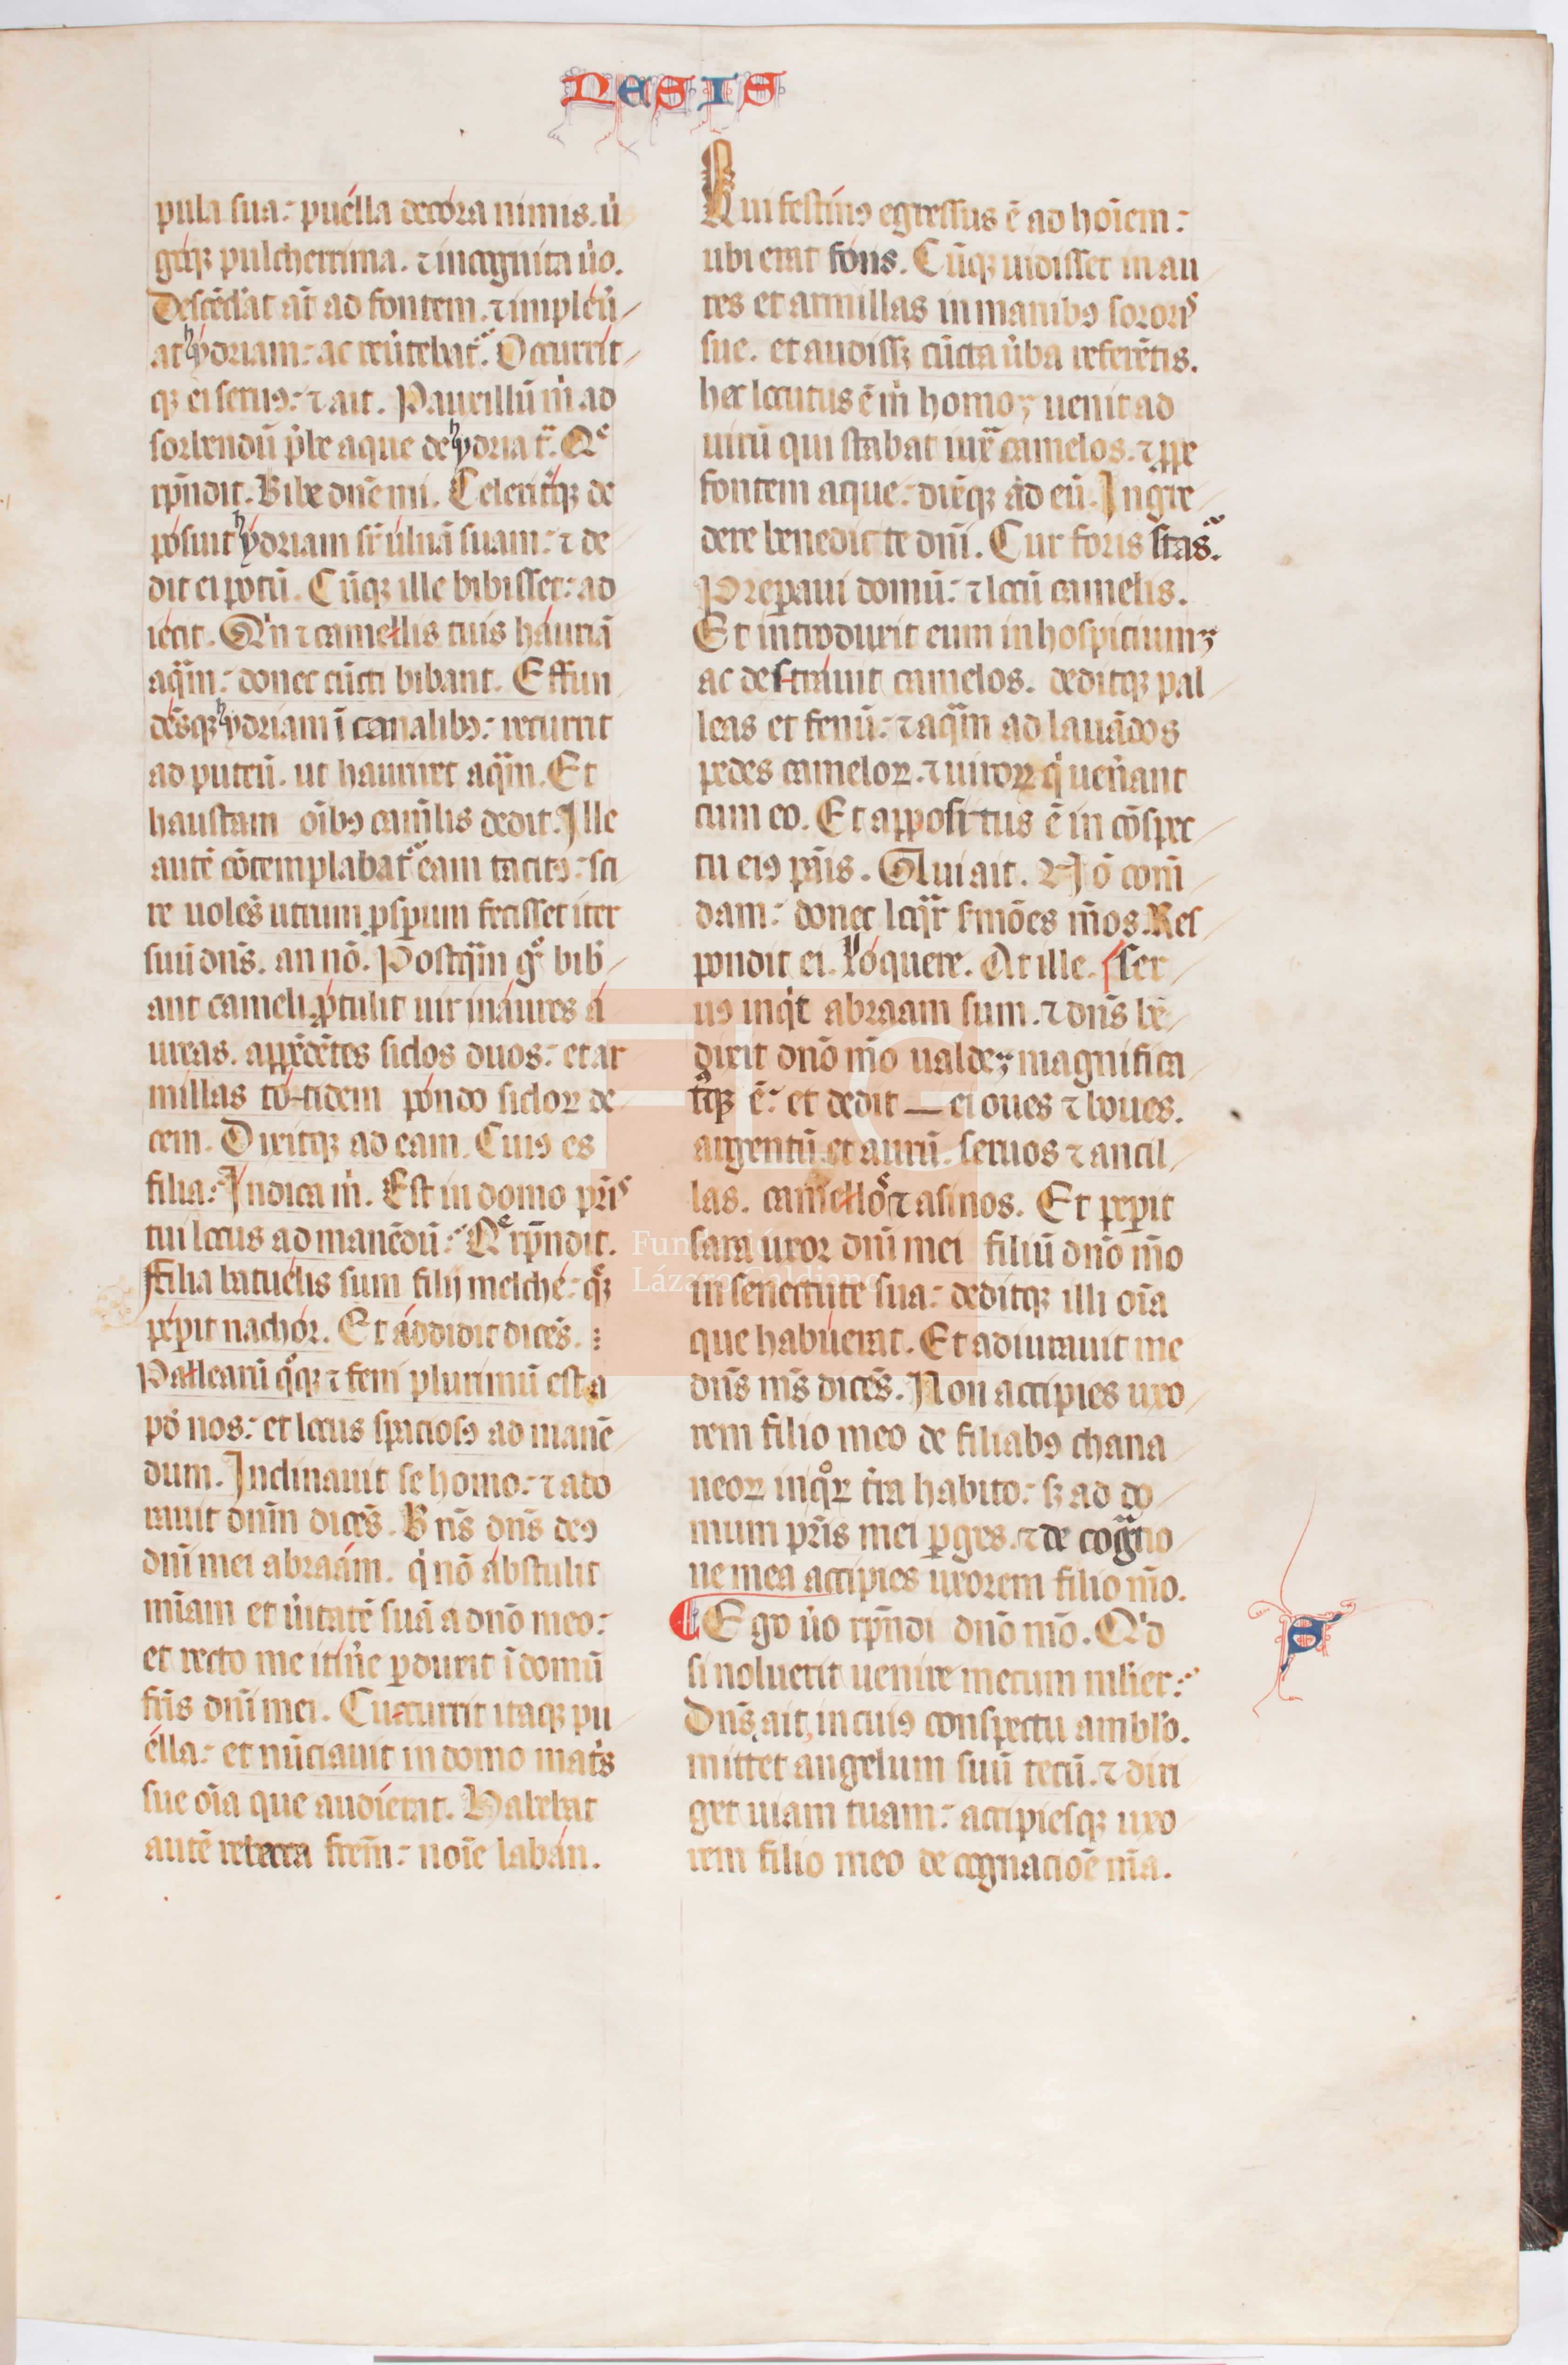 NESIS
pula sua: puella decora nimis. ù
goq₃ pulcherrima. ⁊ incognita ùo.
Descēdˀat at̄ ad fontem. ⁊ impleù
at hydriam: ac reùtebat᷑. Occurrit
q₃ ei seruꝰ: ⁊ ait. Pauxillū m̍ ad
sorbendū p̍be aque de hydria t᷑. Que
rn̄dit. Bibe dn̄e mi. Celeritq₃ de
posuit hydriam sr̄ ulnā suam: ⁊ de
dit ei potū. Cūq₃ ille bibisset: ad
iecit. Qn̍ ⁊ camellis tuis hauriā
aqᵃm: donec cūcti bibant. Effun
dēsq₃ hydriam ī canalibꝰ: recurrit
ad puteū. ut hauriret aqᵃm. Et
haustam oībꝰ caml̄is dedit. Ille
autē cōtemplabat᷑ eam tacitꝰ: sci
re uolēs utrum ꝓsꝑum fecisset iter
suū dn̄s. an nō. Postqᵃm gᵒ bib̍
ant cameli. ꝓtulit uir inaures a
ureas. appēdētes siclos duos: et ar
millas totidem pondo sicloꝝ de
cem. Dixitq₃ ad eam. Cuiꝰ es
filia: Indica m̍. Est in domo pr̄is
tui locus ad manēdū: Que rn̄dit.
Filia batuelis sum filij melche: quē
peꝑit nachor. Et addidit dicēs.
Palleaꝝ qᵒq₃ ⁊ feni plurimū est a
pᵒ nos: et locus spaciosꝰ ad manē
dum. Inclinauit se homo: ⁊ ado
rauit dn̄m dicēs. Bn̄s dn̄s deꝰ
dn̄i mei abraam. q̍ nō abstulit
mīam et ùitatē suā a dnō meo:
et recto me itin̍e ꝑduxit ī domū
fr̄is dn̄i mei. Cucurrit itaq₃ pu
ella: et nūciauit in domo mat̍s
sue oīa que audierat. Habebat
autē rebecca frēm: noīe laban.
Qui festinꝰ egressus ē ad hoīem:
ubi erat fons. Cūq₃ uidisset in au
res et armillas in manibꝰ sororis
sue. et audiss₃ cūcta ùba referētis.
hec locutus ē m̍ homo; uenit ad
uirū qui stabat iuxᵃ camelos. ⁊ ꝓpe
fontem aque: dixitq₃ ad eū. Ingre
dere benedicte dn̄i. Cur foris stas.
Preparaui domū: ⁊ locū camelis.
Et introduxit eum in hospicium;
ac destrauit camelos. deditq₃ pal
leas et fenū: ⁊ aqᵃm ad lauādos
pedes cameloꝝ. ⁊ uiroꝝ q̍ uen̍ant
cum eo. Et appositus ē in cōspec
tu eiꝰ pn̄is. Qui ait. Nō com̄
dam: donec loqᵃr sˀmōes mēos. Res
pondit ei. loquere. At ille. ser
uꝰ inq̍t abraam sum. ⁊ dn̄s bē
dixit dnō mō ualde; magnifica
tꝰq₃ ē: et dedit — ei oues ⁊ boues.
argentū et aurū. seruos ⁊ ancil
las. camellos ⁊ asinos. Et peꝑit
sara uxor dn̄i mei filiū dnō mō
in senectute sua: deditq₃ illi oīa
que habuerat. Et adiurauit me
dn̄s ms̄ dicēs. Non accipies uxo
rem filio meo de filiabꝰ chana
neoꝝ in quoꝝ tr̄a habito: s₃ ad do
mum pr̄is mei ꝑges. ⁊ de cogᵃtio
ne mea accipies uxorem filio mō.
Ego ùo rn̄di dnō mō. Qd̍
si noluerit uenire mecum mlier:
Dn̄s, ait, in cuiꝰ conspectu ambl̄o.
mittet angelum suū tecū. ⁊ diri
get uiam tuam: accipiesq₃ uxo
rem filio meo de cognacioē mīa.
Fundación
Lázaro Galdiano